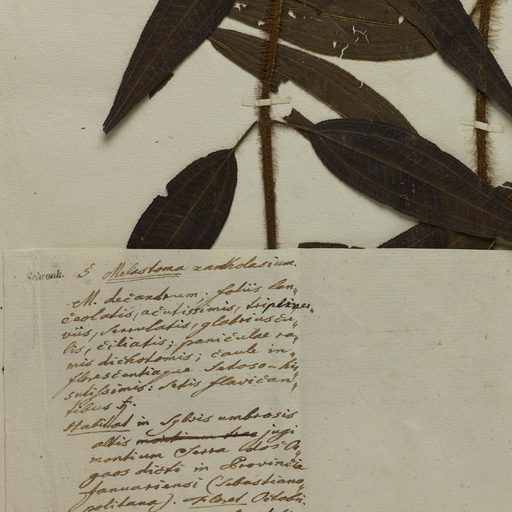 Schrank.
5 Melastoma xantholasium.
M. decandrum; foliis lan„
ceolatis, acutissimis, tripliner„
viis, serrulatis, glabriuscu„
lis, ciliatis; paniculae ra„
mis dichotomis; caule in„
florescentiaque setoso-hir„
sutissimis: setis flavican„
tibus ♄.
Habitat in sylvis umbrosis
altis montium jugi
montium Serra dos Or„
gaos dicti in Provincia
Januariensi (Sebastiano„
politana). Floret Octobri.